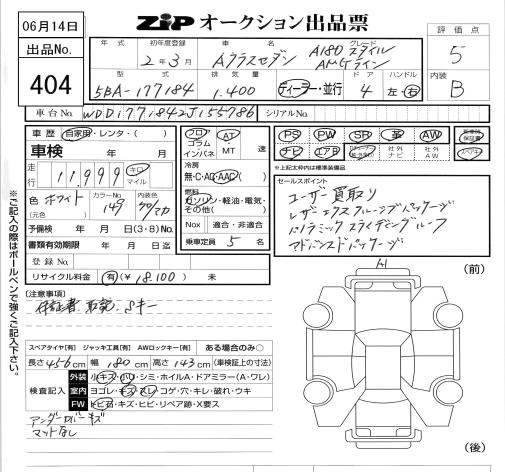 06月14日
出品No.
404
ZIP オークション出品票
評価点
5
内装
B
年式 初年度登録 車名 グレード
2年3月 Aクラスセダン A180 スタイル
AMGライン
型式 排気量 ドア ハンドル
5BA-177184 1.400 ディーラー・並行 4 左・右
車台No. WDD1771842J155786 シリアルNo.
車歴 自家用・レンタ・( )
車検 年 月
走行 11,999 キロ マイル
色 ホワイト カラーNo. 149 内装色
(元色)
予備検 年 月 日(3・8)No.
書類有効期限 年 月 日迄
登録No.
リサイクル料金 有(¥18,100) 未
フロア
コラム
インパネ
AT
MT
速
冷房
無・C・AG・AAC( )
燃料
ガソリン・軽油・電気・
その他( )
Nox 適合・非適合
乗車定員 5 名
PS PW SR 革 AW
ナビ エアB 社外ナビ 社外AW
*上記太枠内は標準装備品
セールスポイント
ユーザー買取り
レザーエクスクルーシブパッケージ
パノラミックスライディングルーフ
アドバンスドパッケージ
[注意事項]
保証書、取説、Sキー
スペアタイヤ[有] ジャッキ工具[有] AWロックキー[有] ある場合のみ○
長さ456cm 幅180cm 高さ143cm (車検証上の寸法)
検査記入
外装 小キズ・小凹・シミ・ホイルA・ドアミラー(A・ワレ)
室内 ヨゴレ・キズ・スレ・コゲ・穴・キレ・破れ・ウキ
FW トビ石・キズ・ヒビ・リペア跡・X要ス
アンダーカバーキズ
マットなし
(前)
(後)
※ご記入の際はボールペンで強くご記入下さい。